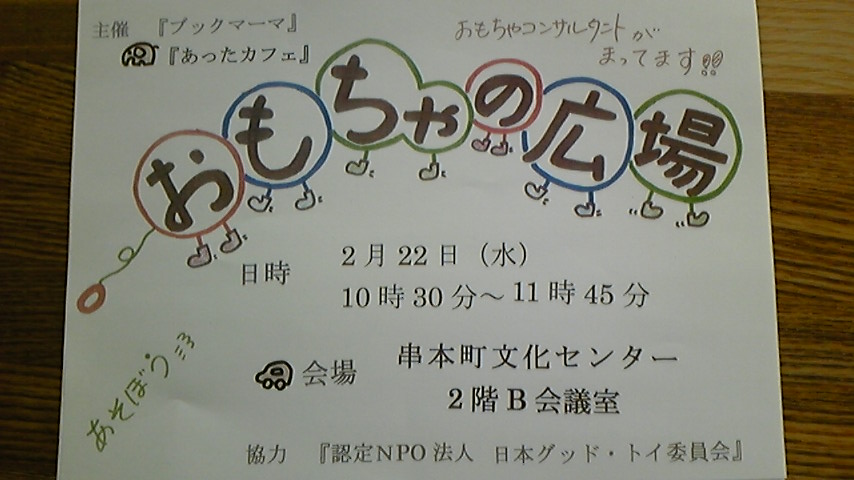 主催 『ブックマーマ』
『あったカフェ』
おもちゃコンサルタントが
まってます!!
おもちゃの広場
日時 2月22日(水)
10時30分～11時45分
会場 串本町文化センター
2階B会議室
あそぼう
協力 『認定NPO法人 日本グッド・トイ委員会』